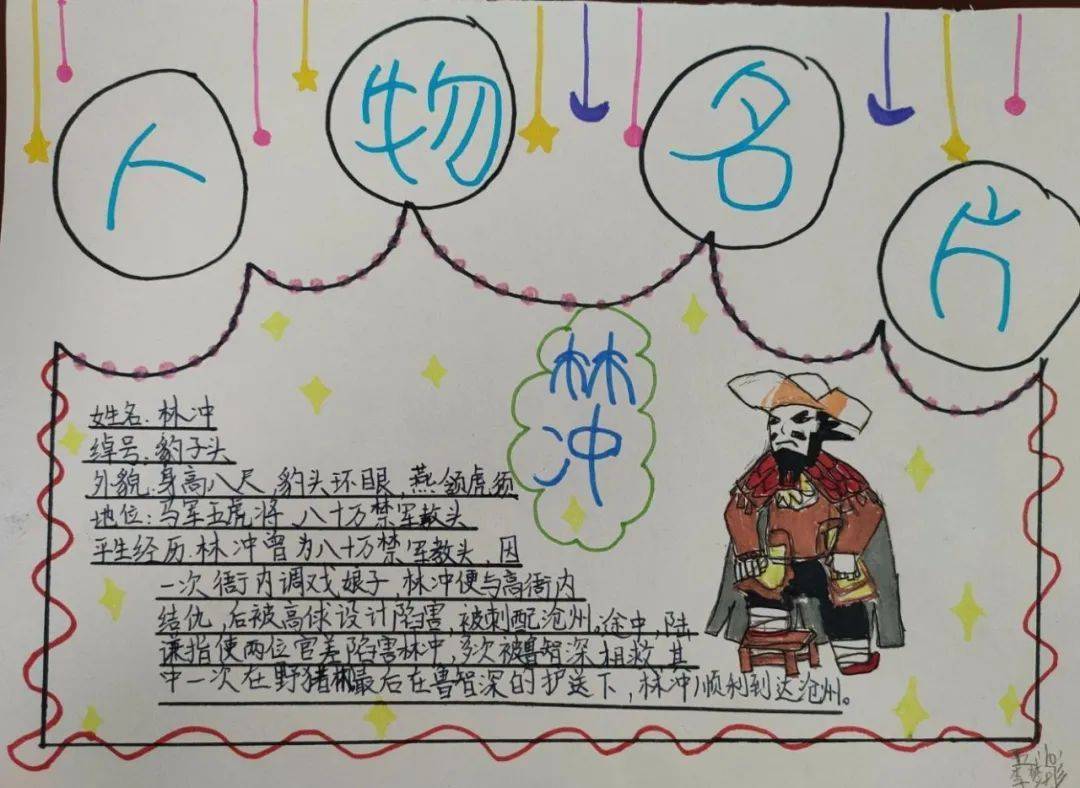 人物名片
林冲
姓名.林冲
绰号.豹子头
外貌.身高八尺,豹头环眼,燕颔虎须
地位:马军五虎将、八十万禁军教头
平生经历.林冲曾为八十万禁军教头,因
一次衙内调戏娘子,林冲便与高衙内
结仇,后被高俅设计陷害,被刺配沧州。途中,陆
谦指使两位官差陷害林冲,多次被鲁智深相救,其
中一次在野猪林,最后在鲁智深的护送下,林冲顺利到达沧州。